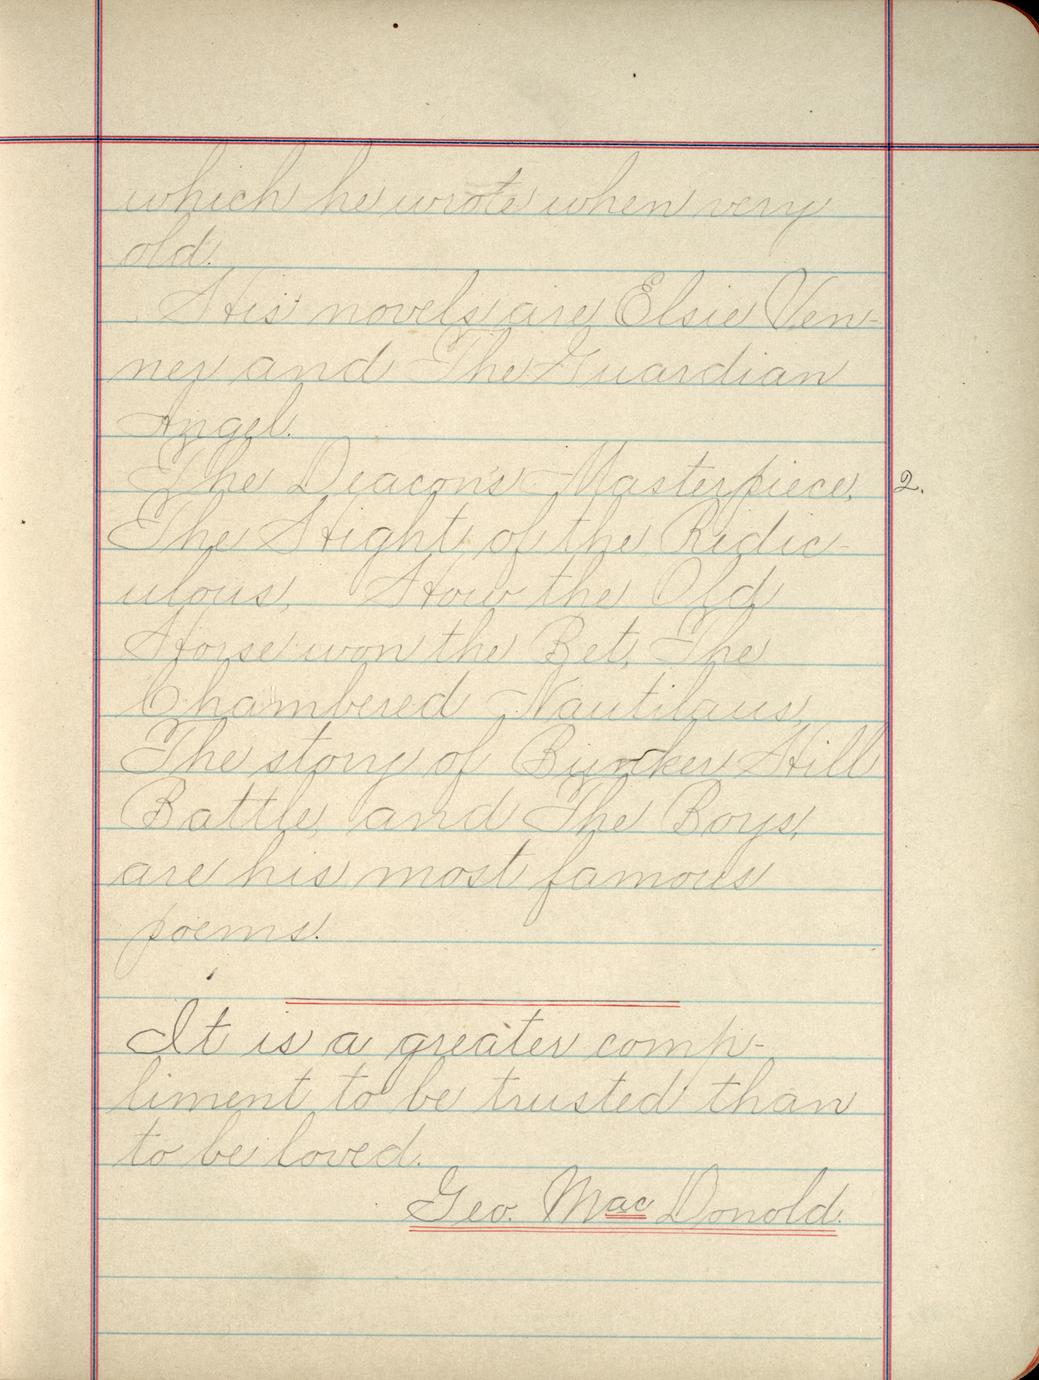 which he wrote when very
old.
His novels are Elsie Ven-
ner and The Guardian
Angel.
The Deacon's Masterpiece, 2.
The Hight of the Ridic-
ulous, How the Old
Horse won the Bet, The
Chambered Nautilaus,
The story of Bunker Hill
Battle, and The Boys,
are his most famous
poems.
It is a greater comp-
liment to be trusted than
to be loved.
Geo. Mac Donold.